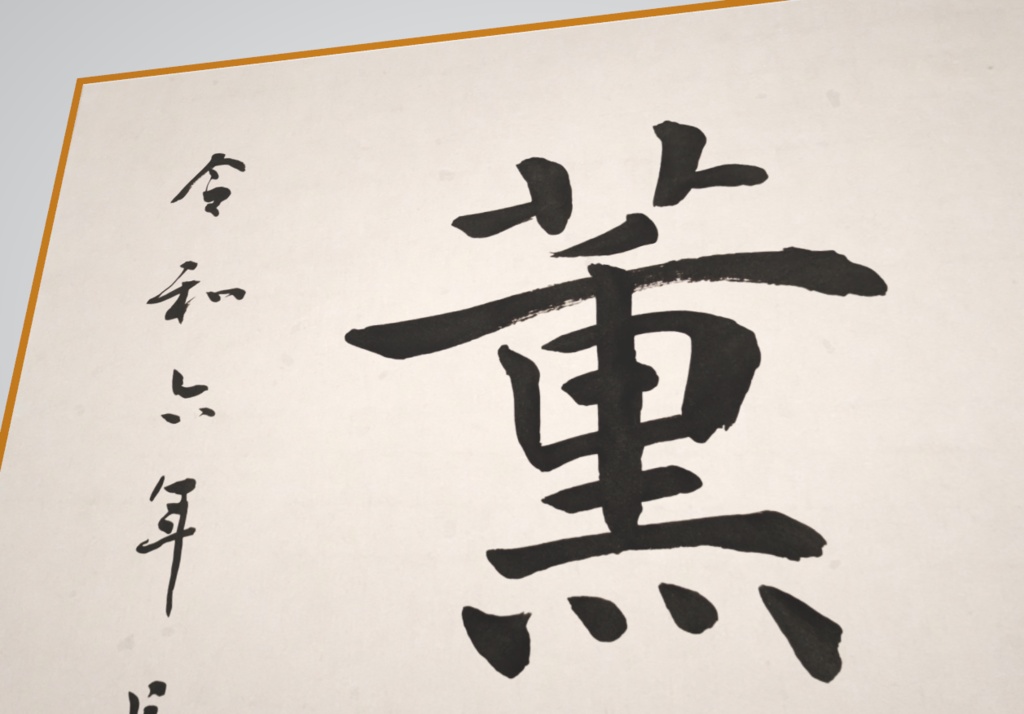 薫
令和六年